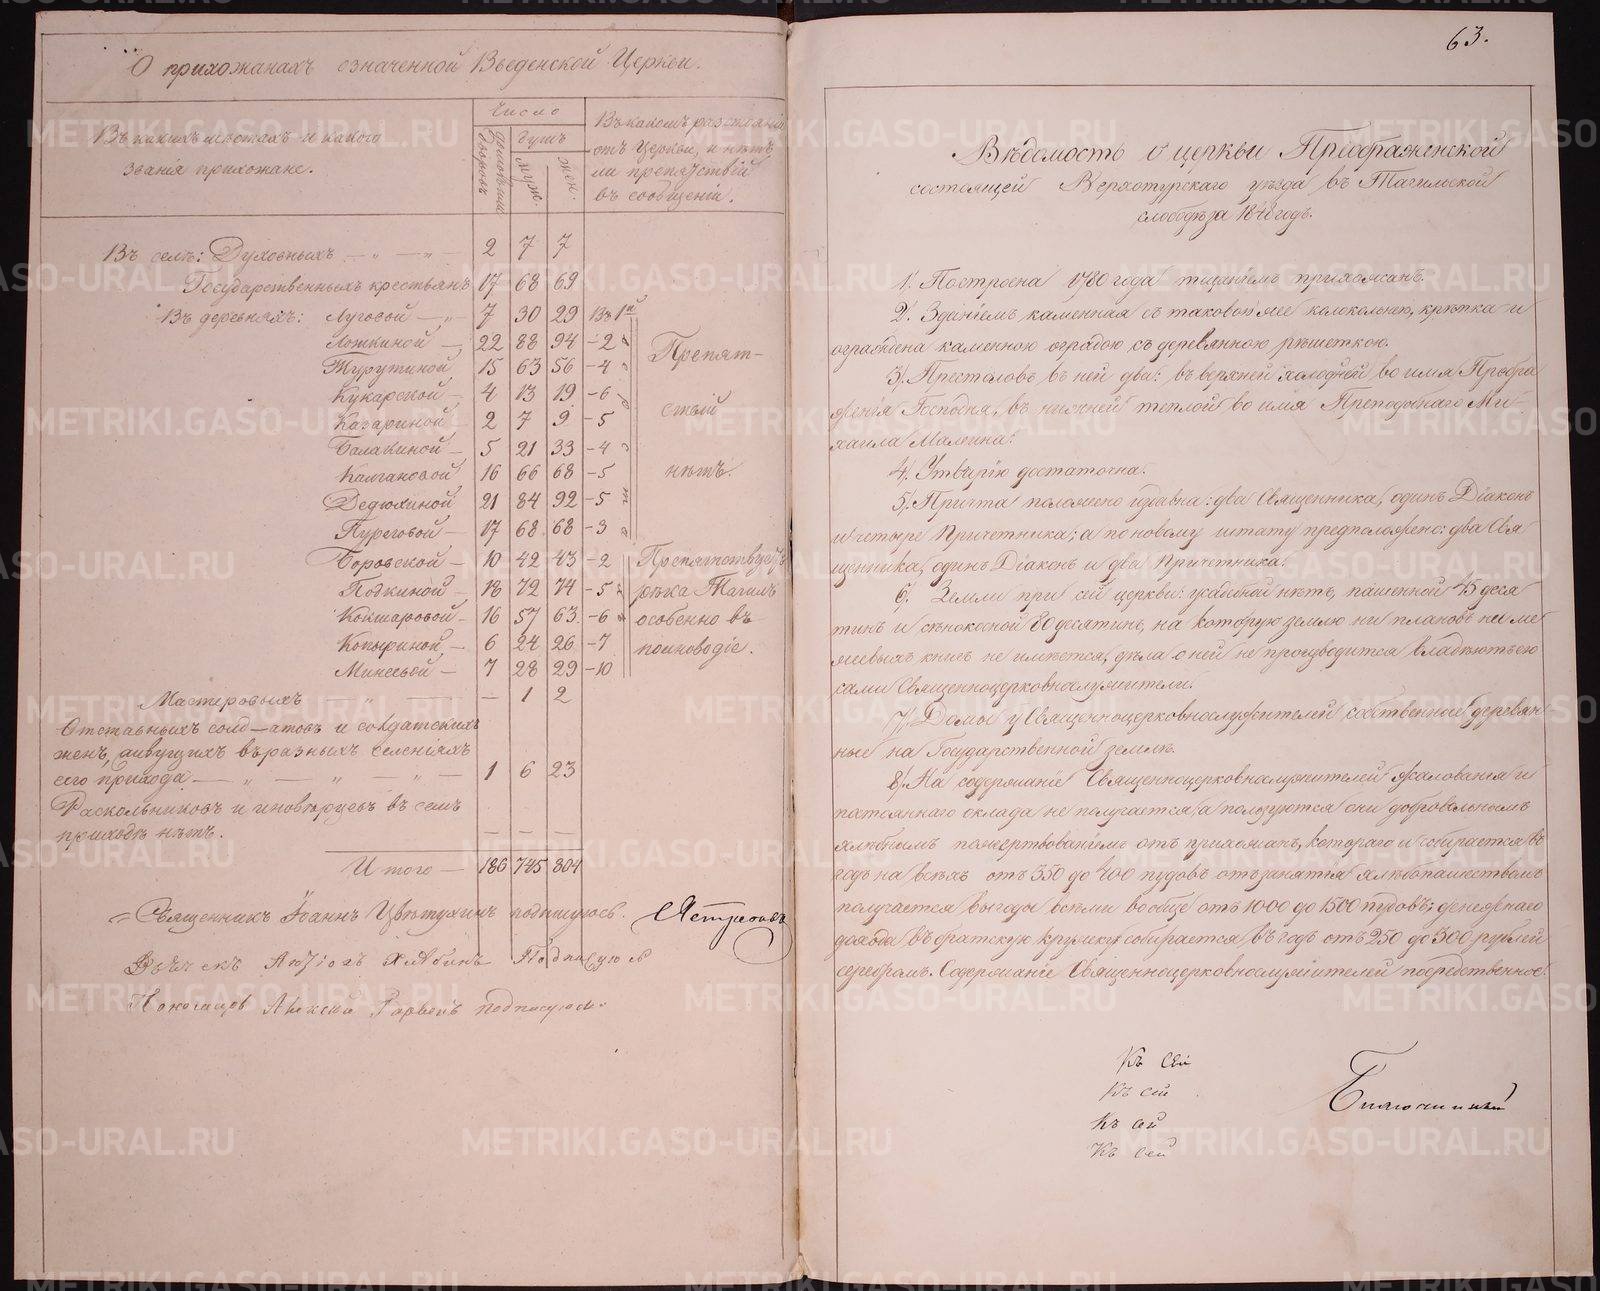 О прихожанахъ означенной Введенской Церкви.
Въ какихъ мѣстахъ и какого
званія прихожане.
Число
Дворовъ
душъ
муж.
жен.
Въ какомъ разстояніи
отъ Церкви, и нѣтъ
ли препятствій
въ сообщеніи.
Въ селѣ: Духовныхъ — „ — „ — 2 7 7
Государственныхъ крестьянъ 17 68 69
Въ деревняхъ: Луговой — „ 7 30 29 Въ 1й
Лопкиной — 22 88 94 – 2
Турутиной 15 63 56 – 4
Кукарской – 4 13 19 – 6
Казариной – 2 7 9 – 5
Балакиной – 5 21 33 – 4
Калгановой 16 66 68 – 5
Дедюхиной 21 84 92 – 5
Пуреговой – 17 68 68 – 3
Препят-
ствій
нѣтъ.
Боровской – 10 42 43 – 2
Подкиной – 18 72 74 – 5
Кокшаровой – 16 57 63 – 6
Копыриной – 6 24 26 – 7
Минеевой – 7 28 29 – 10
Препятствуетъ
рѣка Тагилъ
особенно въ
полноводіе.
Мастеровыхъ — „ — — 1 2
Отставныхъ солд–атовъ и солдатскихъ
женъ, живущихъ въ разныхъ селеніяхъ
сего прихода — „ — „ — „ — 1 6 23
Раскольниковъ и иновѣрцевъ въ семъ
приходѣ нѣтъ. — — —
Итого — 186 745 804
Священникъ Іоаннъ Цвѣтухинъ подпишуюсь.
Подписуюсь
Пономарь Алексѣй подписуюсь
63.
Вѣдомость о церкви Преображенской
состоящей Верхотурскаго уѣзда въ Тагильской
слободѣ за 1848 годъ.
1. Построена 1780 года тщаніемъ прихожанъ.
2. Зданіемъ каменная съ таковою же колокольнею, крѣпка и
ограждена каменною оградою съ деревянною рѣшеткою.
3. Престоловъ въ ней два: въ верхней холодной во имя Преобра
женія Господня, въ нижней теплой во имя Преподобнаго Ми-
хаила Малеина.
4. Утварію достаточна.
5. Причта положено издавна: два Священника, одинъ Діаконъ
и четыре Причетника; а по новому штату предположено: два Свя
щенника, одинъ Діаконъ и два Причетника.
6. Земли при сей церкви: усадебной нѣтъ, пашенной 45 деся
тинъ и сѣнокосной 80 десятинъ, на которую землю ни плановъ ни ме
жевыхъ книгъ не имѣется, дѣла о ней не производится владѣютъ ею
сами Священноцерковнослужители.
7. Домы у Священноцерковнослужителей собственные деревян
ные на Государственной землѣ.
8. На содержаніе Священноцерковнослужителей жалованья и
постояннаго оклада не получается, а пользуются они добровольнымъ
хлѣбнымъ пожертвованіемъ отъ прихожанъ, котораго и собирается въ
годъ на всѣхъ отъ 350 до 400 пудовъ отъ занятія хлѣбопашествомъ
получается выгоды всѣми вообще отъ 1000 до 1500 пудовъ; денежнаго
дохода въ братскую кружку собирается въ годъ отъ 250 до 300 рублей
серебромъ. Содержаніе Священноцерковнослужителей посредственное.
Къ сей
Къ сей
Къ сей
Къ сей
METRIKI.GASO-URAL.RU